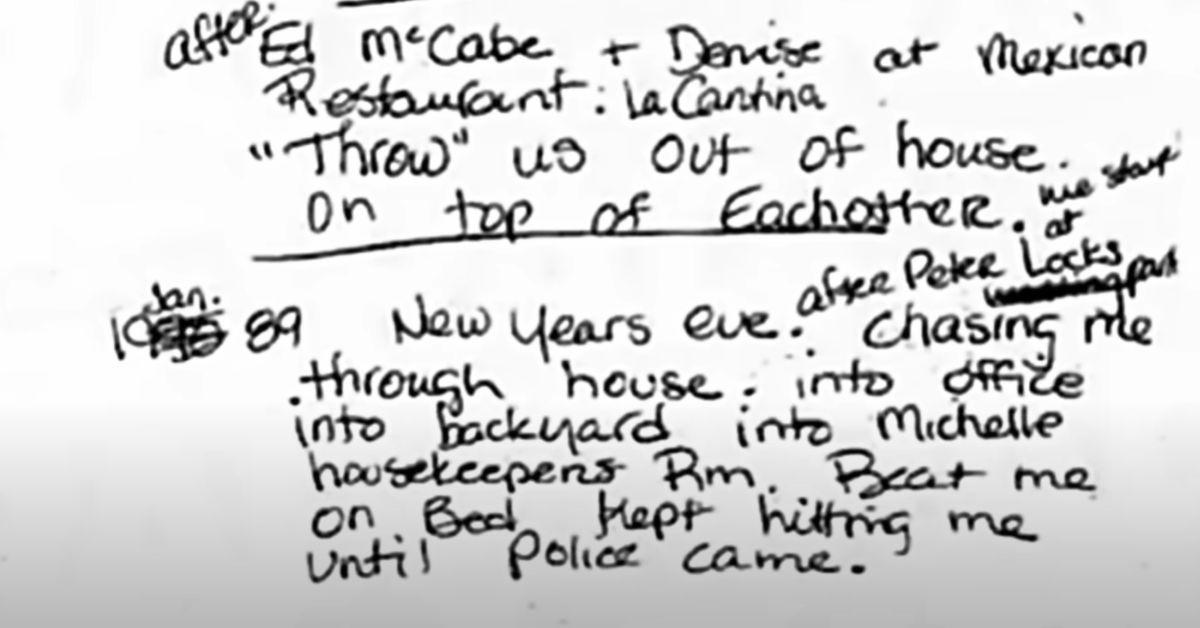 after Ed McCabe + Denise at Mexican
Restaurant: La Cantina
"Throw" us out of house.
on top of Eachother. we start
at
Jan. after Peter Locks part
19 89 New Years eve. Chasing me
through house. into office
into backyard into Michelle
housekeepers Rm. Beat me
on Bed kept hitting me
until Police came.